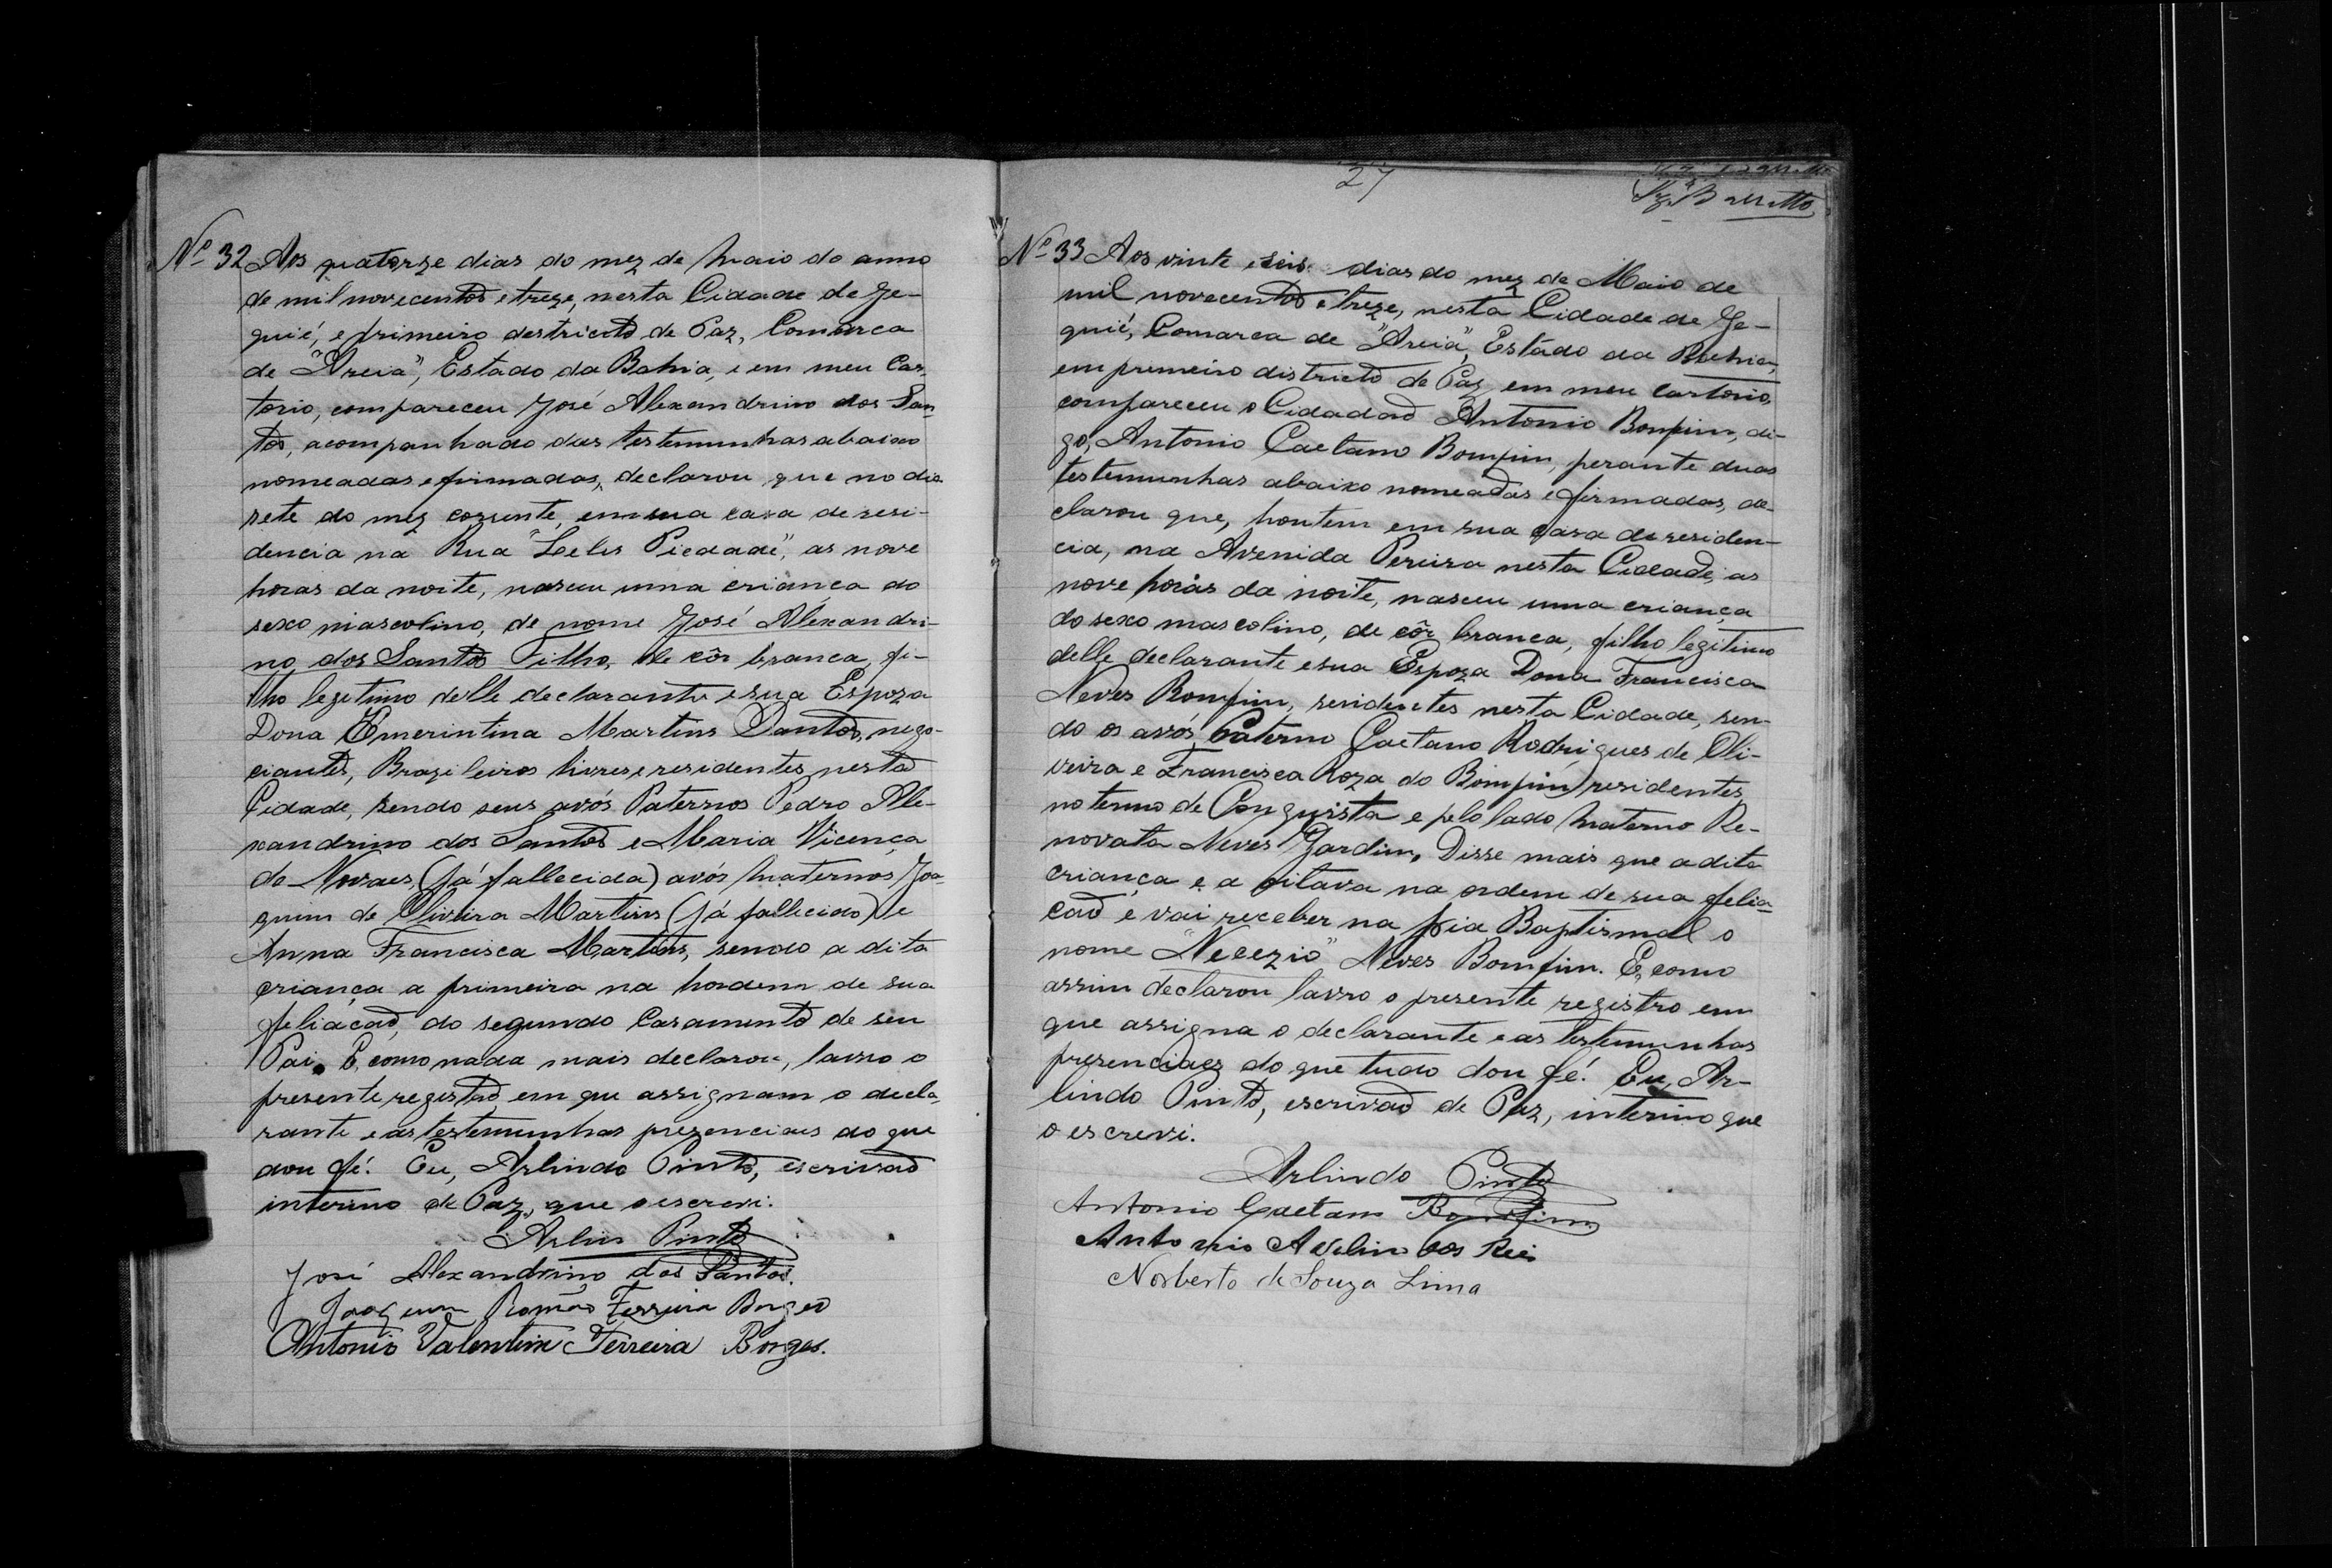 Nº 32 Aos quatorze dias do mez de Maio do anno
de mil novecentos e treze, nesta Cidade de Je-
quié, e primeiro destricto de Paz, Comarca
de "Areia", Estado da Bahia, e em meu Car-
torio, compareceu José Alexandrino dos San-
tos, acompanhado das testemunhas abaixo
nomeadas e firmadas, declarou que no dia
sete do mez corrente, em sua casa de resi-
dencia na Rua "Lelis Piedade", as nove
horas da noite, nasceu uma criança do
sexo mascolino, de nome José Alexandri-
no dos Santos Filho, de côr branca, fi-
lho legitimo delle declarante e sua Espoza
Dona Emerintina Martins Santos, nego-
ciantes, Brazileiros livres e residentes nesta
Cidade, sendo seus avós Paternos Pedro Ale-
xandrino dos Santos e Maria Vicença
de Novaes, (já fallecida) avós Maternos Joa-
quim de Oliveira Martins (já fallecido) e
Anna Francisca Martins, sendo a dita
criança a primeira na hordem de sua
feliação, do segundo Casamento de seu
Pai. E, como nada mais declarou, lavro o
presente registo em que assignam o decla-
rante e as testemunhas prezenciaes do que
dou fé. Eu, Arlindo Pinto, escrivão
interino de Paz, que o escrevi.
Pinto
José Alexandrino dos Santos.
Joaquim Romão Ferreira Borges
Antonio Valentim Ferreira Borges.
27
Barretto
Nº 33 Aos vinte e seis dias do mez de Maio de
mil novecentos e treze, nesta Cidade de Je-
quié, Comarca de "Areia", Estado da Bahia,
em premeiro districto de Paz em meu cartorio,
compareceu o Cidadão Antonio Bomfim, di-
go, Antonio Caetano Bomfim, perante duas
testemunhas abaixo nomeadas e firmadas, de-
clarou que, hontem em sua casa de residen-
cia, na Avenida Pereira nesta Cidade, as
nove horas da noite, nasceu uma criança
do sexo mascolino, de côr branca, filho legitimo
delle declarante e sua Espoza Dona Francisca
Neves Bomfim, residentes nesta Cidade, sen-
do os avós Paterno Caetano Rodrigues de Oli-
veira e Francisca Roza do Bomfim, residentes
no termo de Conquista e pelo lado Materno Re-
novata Neves Jardim. Disse mais que a dita
criança e a oitava na ordem de sua felia-
cão e vai receber na pia Baptismal o
nome "Necezio" Neves Bomfim. E, como
assim declarou lavro o presente registro em
que assigna o declarante e as testemunhas
prezenciaes do que tudo dou fé. Eu, Ar-
lindo Pinto, escrivão de Paz, interino que
o escrevi.
Arlindo Pinto
Antonio Caetano Bomfim
Antonio Avelino dos Reis
Norberto de Souza Lima